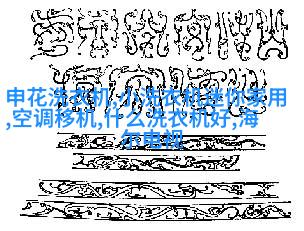 申花洗衣机,小洗衣机迷你家用
,空调移机,什么洗衣机好,海
尔电视